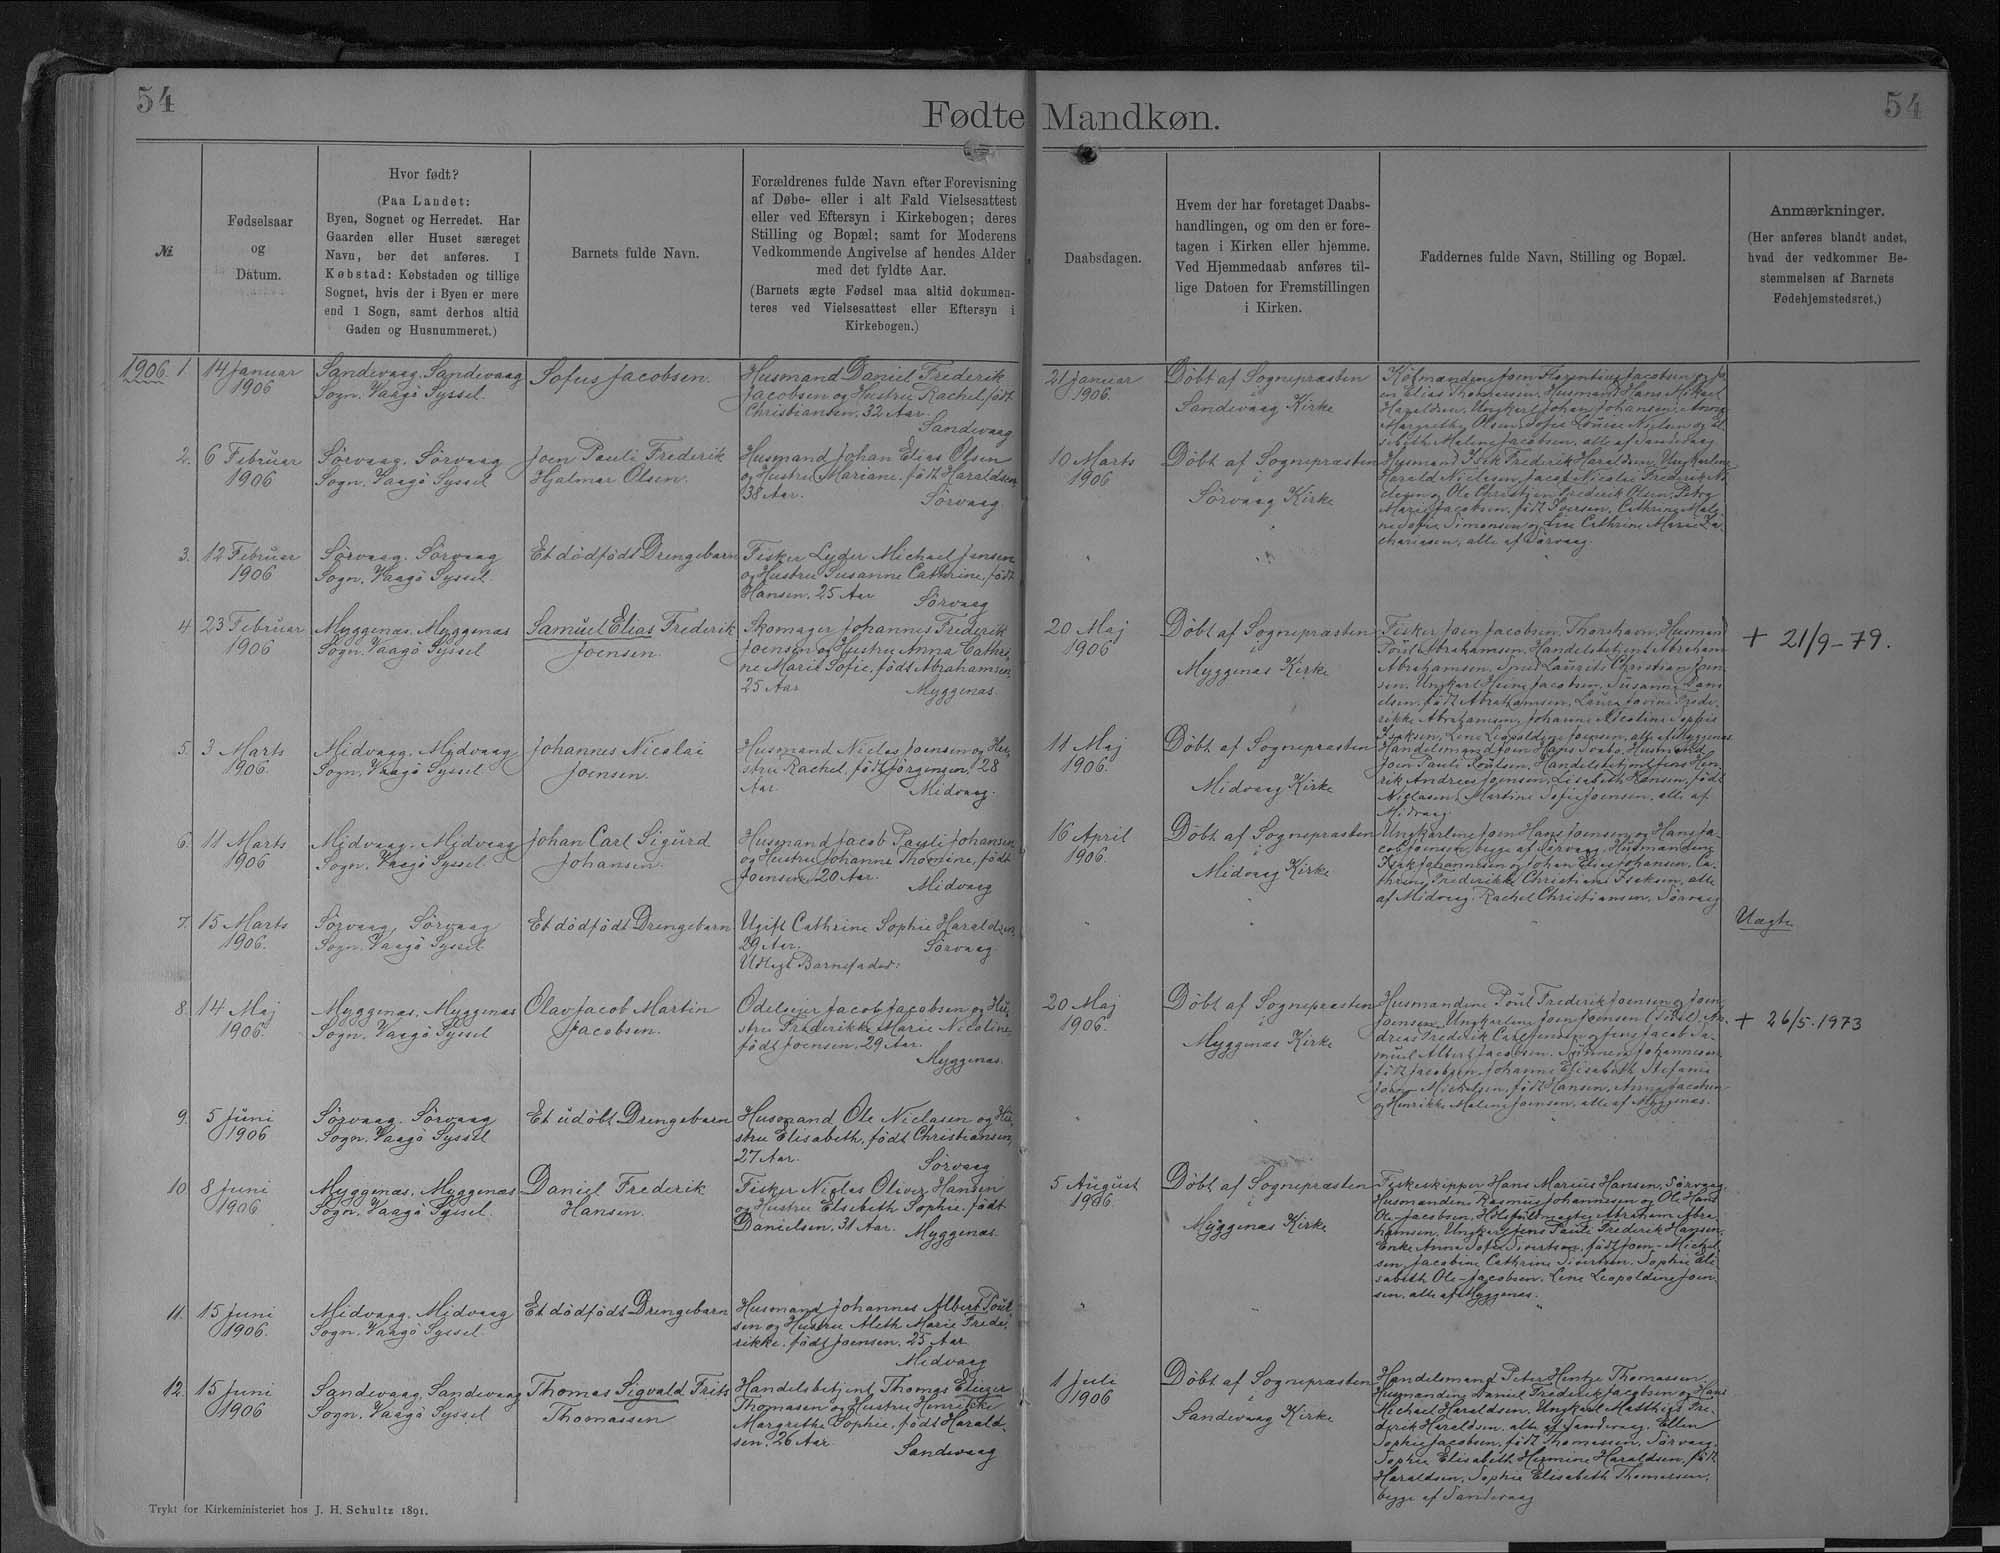 54
Fødte Mandkøn.
54
№
Fødselsaar
og
Datum.
Hvor født?
(Paa Landet:
Byen, Sognet og Herredet. Har
Gaarden eller Huset særeget
Navn, bør det anføres. I
Købstad: Købstaden og tillige
Sognet, hvis der i Byen er mere
end 1 Sogn, samt derhos altid
Gaden og Husnummeret.)
Barnets fulde Navn.
Forældrenes fulde Navn efter Forevisning
af Døbe- eller i alt Fald Vielsesattest
eller ved Eftersyn i Kirkebogen; deres
Stilling og Bopæl; samt for Moderens
Vedkommende Angivelse af hendes Alder
med det fyldte Aar.
(Barnets ægte Fødsel maa altid dokumen-
teres ved Vielsesattest eller Eftersyn i
Kirkebogen.)
Daabsdagen.
Hvem der har foretaget Daabs-
handlingen, og om den er fore-
tagen i Kirken eller hjemme.
Ved Hjemmedaab anføres til-
lige Datoen for Fremstillingen
i Kirken.
Faddernes fulde Navn, Stilling og Bopæl.
Anmærkninger.
(Her anføres blandt andet,
hvad der vedkommer Be-
stemmelsen af Barnets
Fødehjemstedsret.)
1906. 1.
14 Januar
1906
Sandevaag, Sandevaag
Sogn. Vaagö Syssel.
Sofus Jacobsen.
Husmand Daniel Frederik
Jacobsen og Hustru Rachel, født
Christiansen, 32 Aar.
Sandevaag
21 Januar
1906.
Döbt af Sognepræsten
i
Sandevaag Kirke
Kjøbmændene Joen Florentius Jacobsen og Jo-
en Elias Thomassen, Husmand Hans Mikael
Haraldsen, Ungkarl Johan Johansen, Anna
Margrethe Olsen, Sofie Louise Nielsen og El-
sebeth Maline Jacobsen, alle af Sandevaag.
2.
6 Februar
1906
Sörvaag. Sörvaag
Sogn. Vaagö Syssel
Joen Pauli Frederik
Hjalmar Olsen.
Husmand Johan Elias Olsen
og Hustru Mariane, født Haraldsen,
38 Aar.
Sörvaag.
10 Marts
1906
Döbt af Sognepræsten
i
Sörvaag Kirke
Husmand Isak Frederik Haraldsen, Ungkarlene
Harald Niclasen, Jacob Nicolai Frederik Ni-
clasen og Ole Christian Frederik Olsen, Petra
Marie Jacobsen, født Joensen, Cathrine Mal-
ne Sofie Simonsen og Lise Cathrine Marie Za-
chariasen, alle af Sörvaag.
3.
12 Februar
1906
Sörvaag. Sörvaag
Sogn. Vaagö Syssel.
Et dödfödt Drengebarn
Fisker Lyder Michael Jensen
og Hustru Susanne Cathrine, født
Hansen, 25 Aar
Sörvaag
4.
23 Februar
1906
Myggenæs, Myggenæs
Sogn. Vaagö Syssel
Samuel Elias Frederik
Joensen.
Skomager Johannes Frederik
Joensen og Hustru Anna Cathri-
ne Marie Sofie, født Abrahamsen,
25 Aar
Myggenæs.
20 Maj
1906
Döbt af Sognepræsten
i
Myggenæs Kirke
Fisker Joen Jacobsen, Thorshavn, Husmand
Poul Abrahamsen, Handelsbetjent Abraham
Abrahamsen, Smed Laurits Christian Joen-
sen, Ungkarl Heine Jacobsen, Susanne Dani-
elsen, født Abrahamsen, Laura Jovine Frede-
rikke Abrahamsen, Johanne Nicoline Sophie
Isaksen, Lene Leopoldine Joensen, alle af Myggenæs
+ 21/9-79.
5.
3 Marts
1906.
Midvaag. Midvaag
Sogn. Vaagö Syssel.
Johannes Nicolai
Joensen.
Husmand Niclas Joensen og Hu-
stru Rachel, født Jörgensen, 28
Aar.
Midvaag.
11 Maj
1906.
Döbt af Sognepræsten
i
Midvaag Kirke
Handelsmand Joen Hans Svabo, Husmand
Joen Pauli Poulsen, Handelsbetjent Jens Hen-
rik Andreas Joensen, Lisabeth Hansen, født
Niclasen, Martine Sofie Joensen, alle af
Midvaag.
6.
11 Marts
1906
Midvaag. Midvaag
Sogn. Vaagö Syssel
Johan Carl Sigurd
Johansen.
Husmand Jacob Pauli Johansen
og Hustru Johanne Thomine, født
Joensen, 20 Aar.
Midvaag
16 April
1906.
Döbt af Sognepræsten
i
Midvaag Kirke
Ungkarlene Joen Hans Joensen og Hans Ja-
cob Joensen, begge af Sörvaag, Husmændene
Isak Johannesen og Johan Elias Johansen, Ca-
thrine Frederikke Christiane Isaksen, alle
af Midvaag. Rachel Christiansen, Sörvaag
7.
15 Marts
1906.
Sörvaag, Sörvaag
Sogn. Vaagö Syssel
Et dödfödt Drengebarn
Ugift Cathrine Sophie Haraldsen
29 Aar.
Sörvaag.
Udlagt Barnefader:
Uægte
8.
14 Maj
1906.
Myggenæs, Myggenæs
Sogn. Vaagö Syssel
Olav Jacob Martin
Jacobsen.
Odelsejer Jacob Jacobsen og Hu-
stru Frederikke Marie Nicoline,
født Joensen, 29 Aar.
Myggenæs.
20 Maj
1906.
Döbt af Sognepræsten
i
Myggenæs Kirke
Husmændene Poul Frederik Joensen og Joen
Joensen, Ungkarlene Joen Joensen, An-
dreas Frederik Carl Jensen og Jens Jacob Sa-
muel Albert Jacobsen, Johannesen
født Jacobsen, Johanne Elisabeth Stefanie
Joen-Michelsen, født Hansen, Anna Jacobsen
og Henrikke Maline Joensen, alle af Myggenæs.
+ 26/5.1973
9.
5 Juni
1906
Sörvaag. Sörvaag
Sogn. Vaagö Syssel
Et udöbt Drengebarn
Husmand Ole Niclasen og Hu-
stru Elisabeth, født Christiansen,
27 Aar.
Sörvaag
10
8 Juni
1906
Myggenæs, Myggenæs
Sogn. Vaagö Syssel.
Daniel Frederik
Hansen.
Fisker Niclas Oliver Hansen
og Hustru Elsebeth Sophie, født
Danielsen, 31 Aar.
Myggenæs.
5 August
1906.
Döbt af Sognepræsten
i
Myggenæs Kirke
Fiskeskipper Hans Marius Hansen, Sörvaag,
Husmændene Rasmus Johannesen og Ole Hans
Ole-Jacobsen, Abraham Abra-
hamsen, Ungkarl Jens Pauli Frederik Hansen,
Enke Anna Sofie Sivertsen, født Joen-Michel-
sen, Jacobine Cathrine Sivertsen, Sophie Eli-
sabeth Ole-Jacobsen, Lene Leopoldine Joen-
sen, alle af Myggenæs.
11.
15 Juni
1906.
Midvaag. Midvaag
Sogn. Vaagö Syssel.
Et dödfödt Drengebarn
Husmand Johannes Albert Poul-
sen og Hustru Aleth Marie Frede-
rikke, født Joensen, 25 Aar.
Midvaag
12.
15 Juni
1906
Sandevaag, Sandevaag
Sogn. Vaagö Syssel
Thomas Sigvald Frits
Thomassen
Handelsbetjent Thomas Eliezer
Thomasen og Hustru Henrikke
Margrethe Sophie, født Harald-
sen, 26 Aar.
Sandevaag
1 Juli
1906
Döbt af Sognepræsten
i
Sandevaag Kirke
Handelsmand Peter Hentze Thomassen.
Husmændene Daniel Frederik Jacobsen og Hans
Michael Haraldsen, Ungkarl Matthias Fre-
derik Haraldsen, alle af Sandevaag. Ellen
Sophie Jacobsen, født Thomassen, Sörvaag.
Sophie Elisabeth Hermine Haraldsen, født
Haraldsen, Sophie Elisabeth Thomassen,
begge af Sandevaag
Trykt for Kirkeministeriet hos J. H. Schultz 1891.